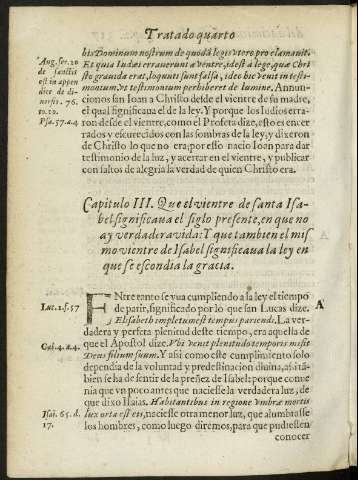 Tratado quarto
Aug. ser. 20
de sanctis
est in appen
dice de di-
uersis. 76.
to. 10.
Psa. 57. a. 4
bis Dominum nostrum de quodã legis vtero proclamauit.
Et quia Iudæi errauerunt a ventre, idest a lege, quæ Chri
sto grauida erat, loquuti sunt falsa, ideo hic venit in testi-
monium, vt testimonium perhiberet de lumine. Annun-
cionos san Ioan a Christo desde el vientre de su madre,
el qual significaua el de la ley. Y porque los Iudios erra-
ron desde el vientre, como el Profeta dize, esto es en cer
rados y escurecidos con las sombras de la ley, y dixeron
de Christo lo que no era; por esso nacio Ioan para dar
testimonio de la luz, y acertar en el vientre, y publicar
con saltos de alegria la verdad de quien Christo era.
Capitulo III. Que el vientre de santa Isa-
bel significaua el siglo presente, en que no
ay verdadera vida: Y que tambien el mis
mo vientre de Isabel significaua la ley en
que se escondia la gracia.
Luc. 1. f. 57
ENtre tanto se yua cumpliendo a la ley el tiempo
A
de parir, significado por lo que san Lucas dize.
Elisabeth impletum est tempus pariendi. La ver-
dadera y perfeta plenitud deste tiempo, era aquella de
Gal. 4. a. 4.
que el Apostol dize. Vbi venit plenitudo temporis misit
Deus filium suum. Y assi como este cumplimiento solo
dependia de la voluntad y predestinacion diuina, assi tã-
bien se ha de sentir de la preñez de Isabel: porque conue
nia que vn poco antes que naciesse la verdadera luz, de
que dixo Isaias. Habitantibus in regione vmbræ mortis
Isai. 65. d.
17.
lux orta est eis, naciesse otra menor luz, que alumbrasse
los hombres, como luego diremos, para que pudiessen
conocer